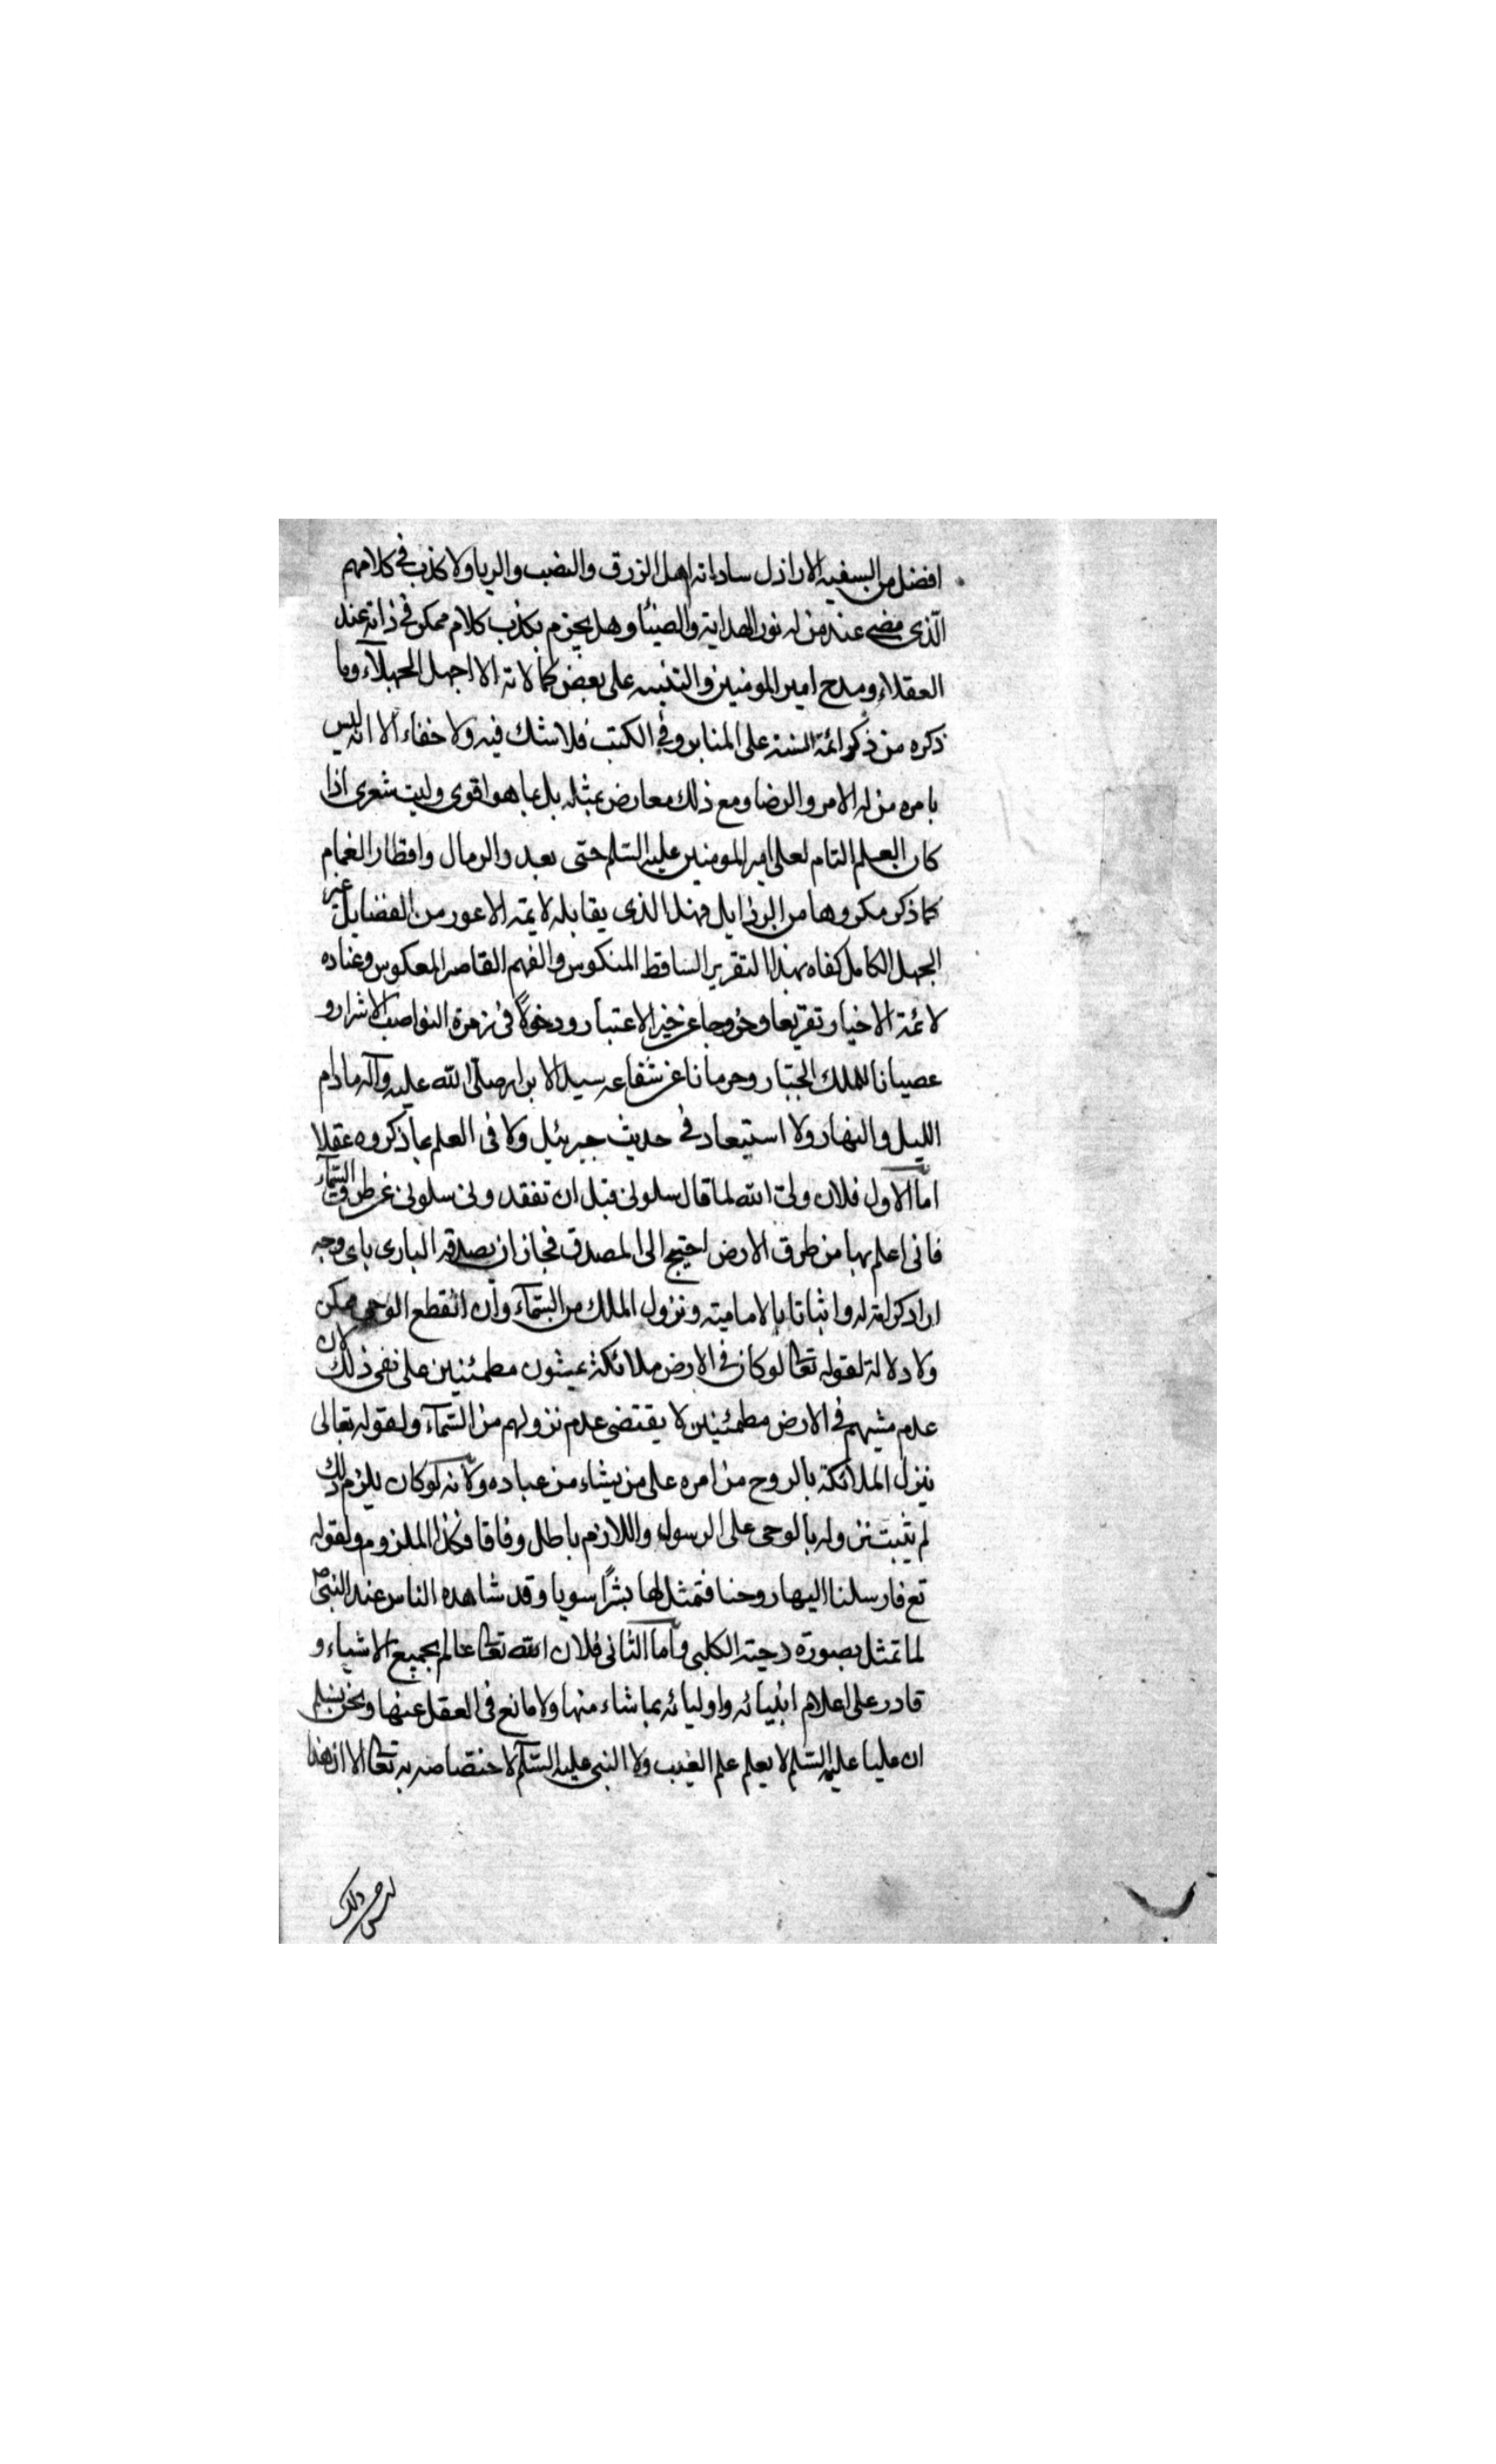 افضل من السفيه الاراذل ساداته اهل الزرق والنصب والريا ولا كذب فى كلامهم
الّذى مضى عند من له نور الهداية والضيئا وهل يجزم بكذب كلام ممكن فى ذاته عند
العقلاء ومدح امير المومنين والتنبيه على بعض كمالاته الا اجهل الجهلآء وما
ذكره من ذكر ائمة السنة على المنابر وفى الكتب فلا شك فيه ولا خفاء الا انه ليس
بامره من له الامر والرضا ومع ذلك معارض بمثله بل بما هو اقوى وليت شعرى اذا
كان العلم التام لعلى امير المومنين عليه السّلم حتى بعدد الرمال واقطار الغمام
كما ذكر مكروها من الرذايل فهذا الذى يقابله لايمته الاعور من الفضايل غير
الجهل الكامل كفاه بهذا التقرير الساقط المنكوس والفهم القاصر المعكوس وعناده
لائمة الاخيار تقريعا وخروجا عن خير الاعتبار ودخولا فى زمرة النواصب الاشرار و
عصيانا للملك الجبّار وحرمانا عن شفاعه سيد الابرار صلى الله عليه وآله مادام
الليل والنهار ولا استبعاد فى حديث جبرئيل ولا فى العلم بما ذكروه عقلا
امّا الاول فلان ولىّ الله لما قال سلونى قبل ان تفقدونى سلونى عن طرق السّمآء
فانى اعلم بها من طرق الارض احتيج الى المصدق فجاز ان يصدقه البارى باى وجه
اراد كرامة له واثباتا بالاماميته ونزول الملك من السّمآء وان انقطع الوحى ممكن
ولا دلالة لقوله تعالى لو كان فى الارض ملائكة يمشون مطمئنين على نفى ذلك لان
عدم مشيهم فى الارض مطمئنين لا يقتضى عدم نزولهم من السّمآء ولقوله تعالى
ينزل الملائكة بالروح من امره على من يشاء من عباده ولانّه لو كان يلزم ذلك
لم يثبت نزوله بالوحى على الرسول واللازم باطل وفاقا فكذا الملزوم ولقوله
تع فارسلنا اليها روحنا فتمثل لها بشرًا سويا وقد شاهده الناس عند النبىّ ص
لما تمثل بصورة دحية الكلبى وامّا الثانى فلان الله تعالى عالم بجميع الاشياء و
قادر على اعلام انبيائه واوليائه بما شاء منها ولا مانع فى العقل عنها ونحن نسلم
ان عليا عليه السّلم لا يعلم علم الغيب ولا النبى عليه السّلم لاختصاصه به تعالى الا ان هذا